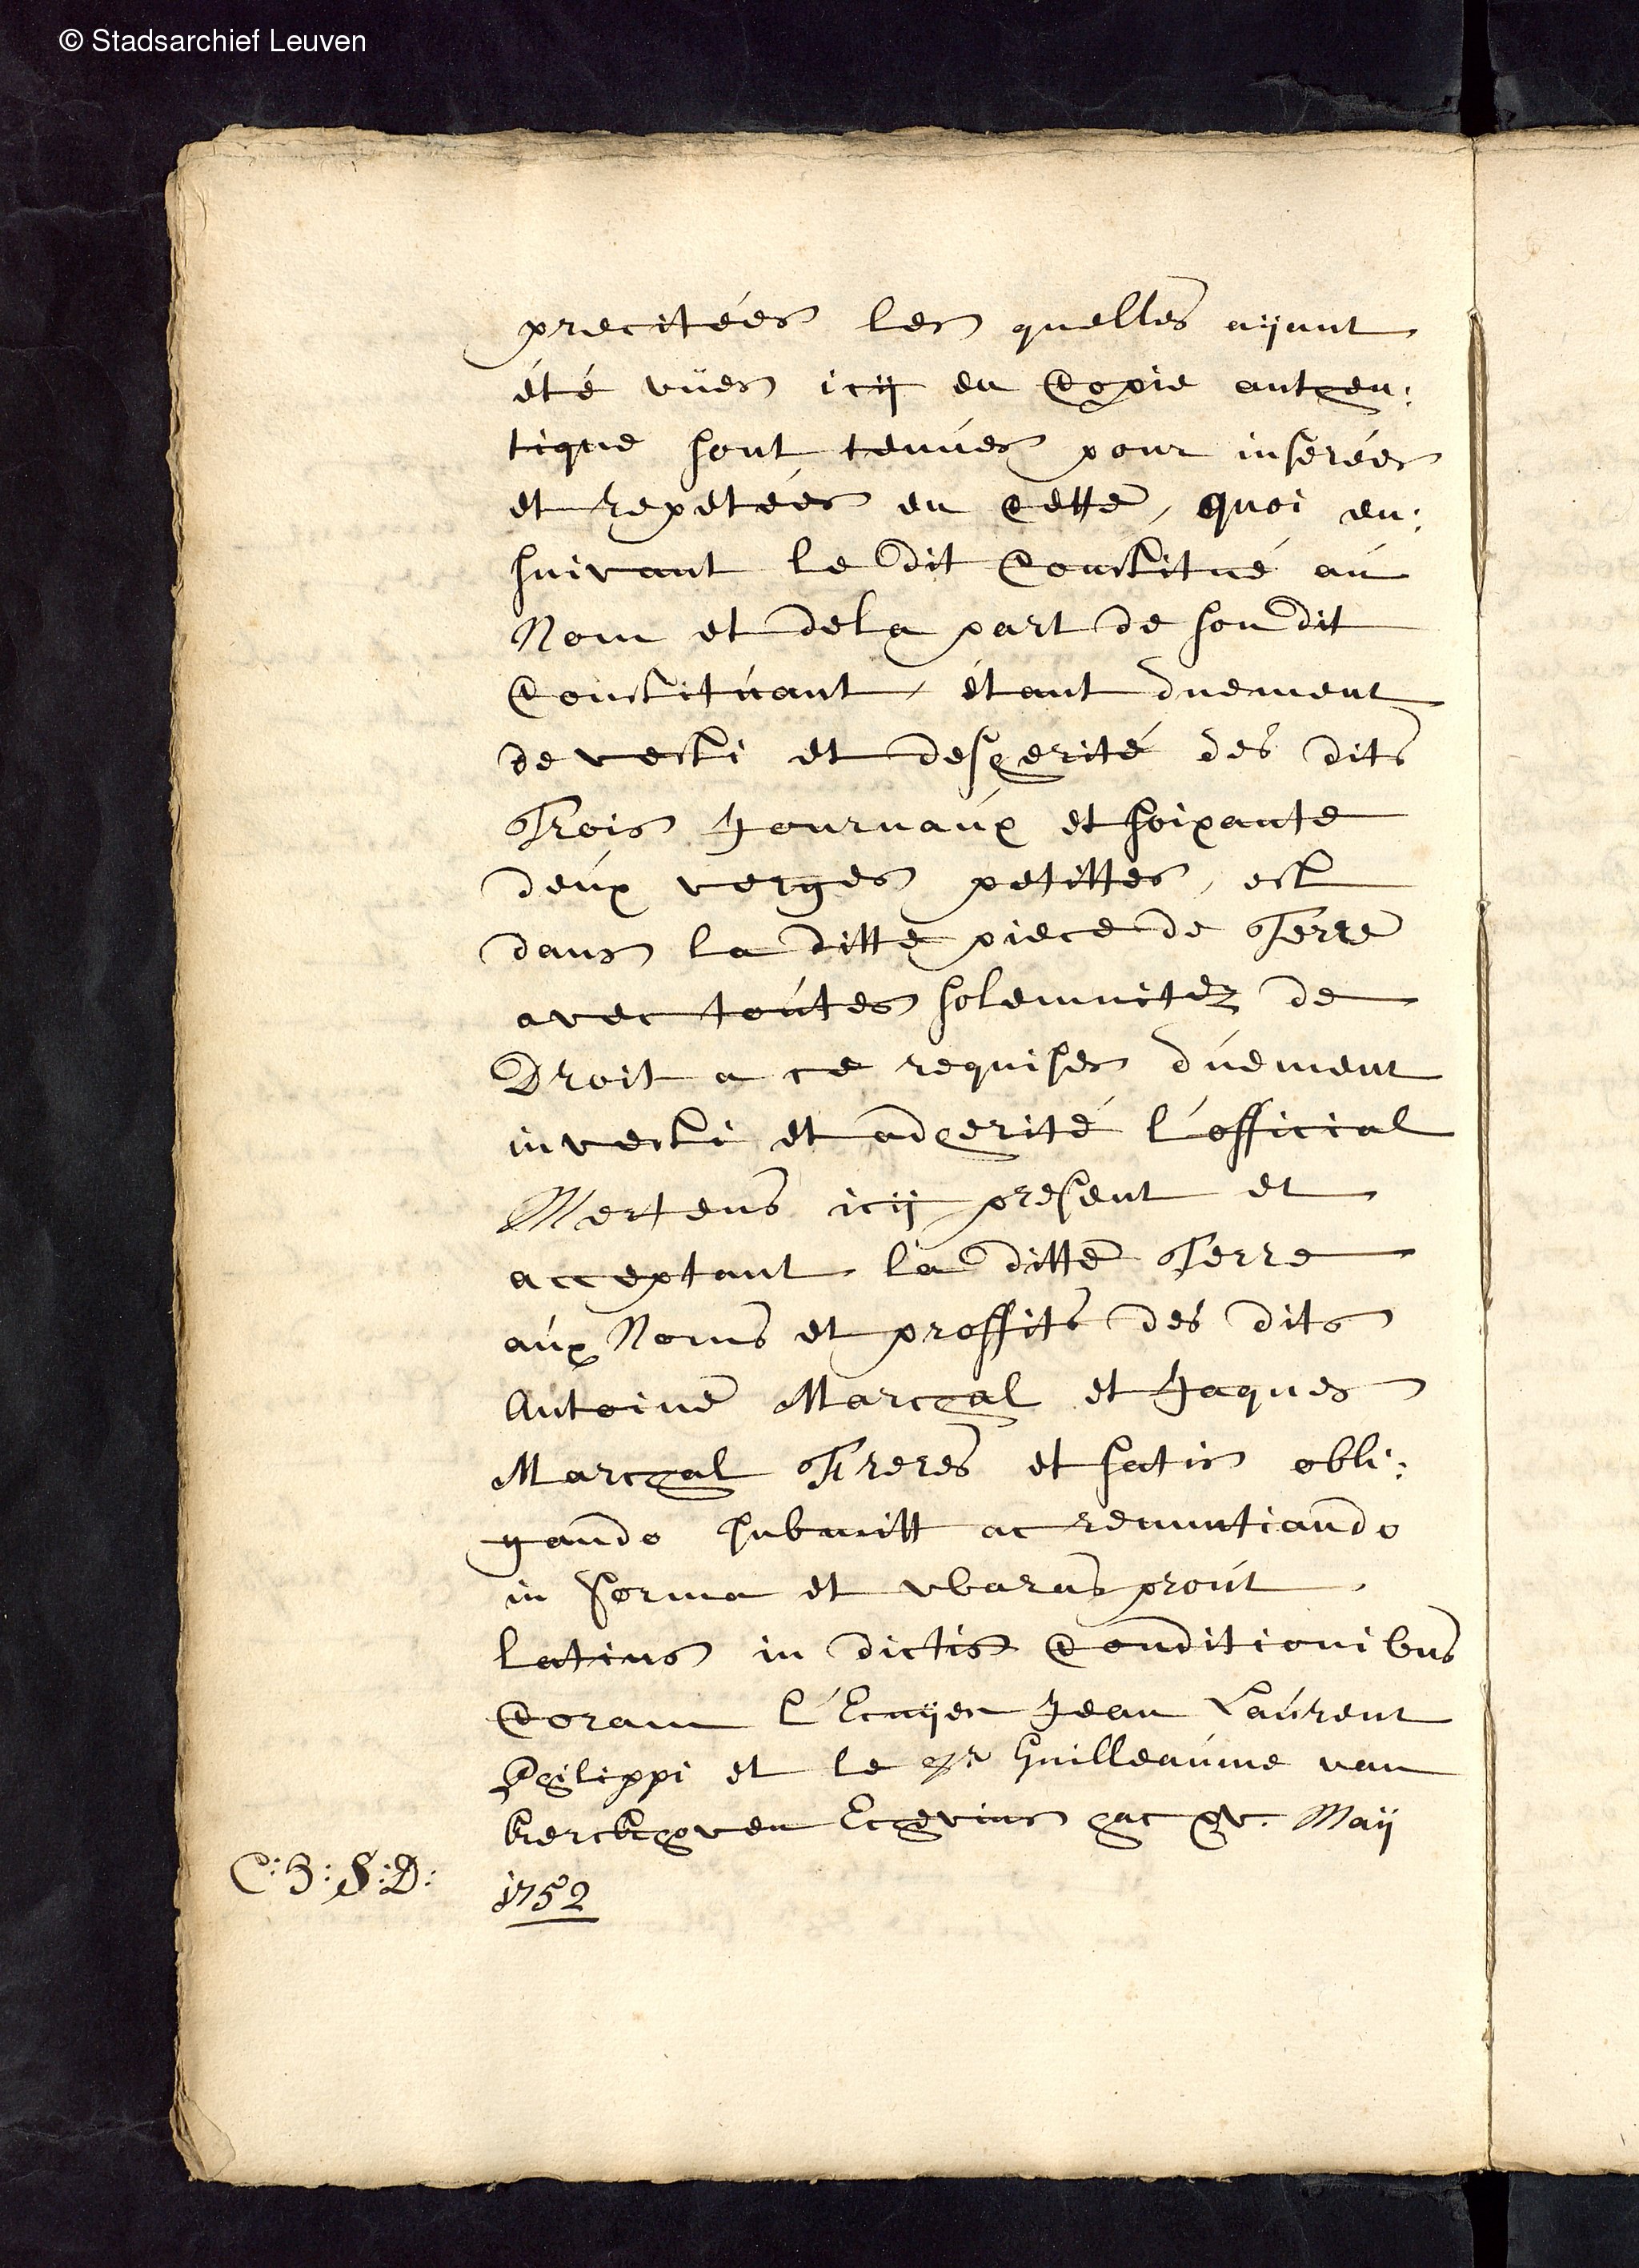 © Stadsarchief Leuven
precitées les quelles aÿant
été vües icÿ en Copie authen:
tique sont tenües pour inserées
et repetées en Cette, quoi en:
suivant le dit Constitué aú
Nom et dela part de son dit
Constitúant, étant duement
devesti et desherité des dits
Trois Journaúx et soixante
deúx verges petittes, est
dans la ditte piece de Terre
avec toútes solemnitez de
Droit a ce requises dúement
investi et adherité l'official
Mertens icÿ present et
acceptant la ditte Terre
aúx Noms et proffits des dits
Antoine Marchal et Jaques
Marchal Freres et satis obli:
gando submitt ac renuntiando
in forma et waras proút
latius in dictis Conditionibus
Coram l'Ecuÿer Jean Laúrent
Philippi et le Sr Guilleaúme van
kerckhoven Echevins hac 15. Maÿ
C: B: S: D:
1752